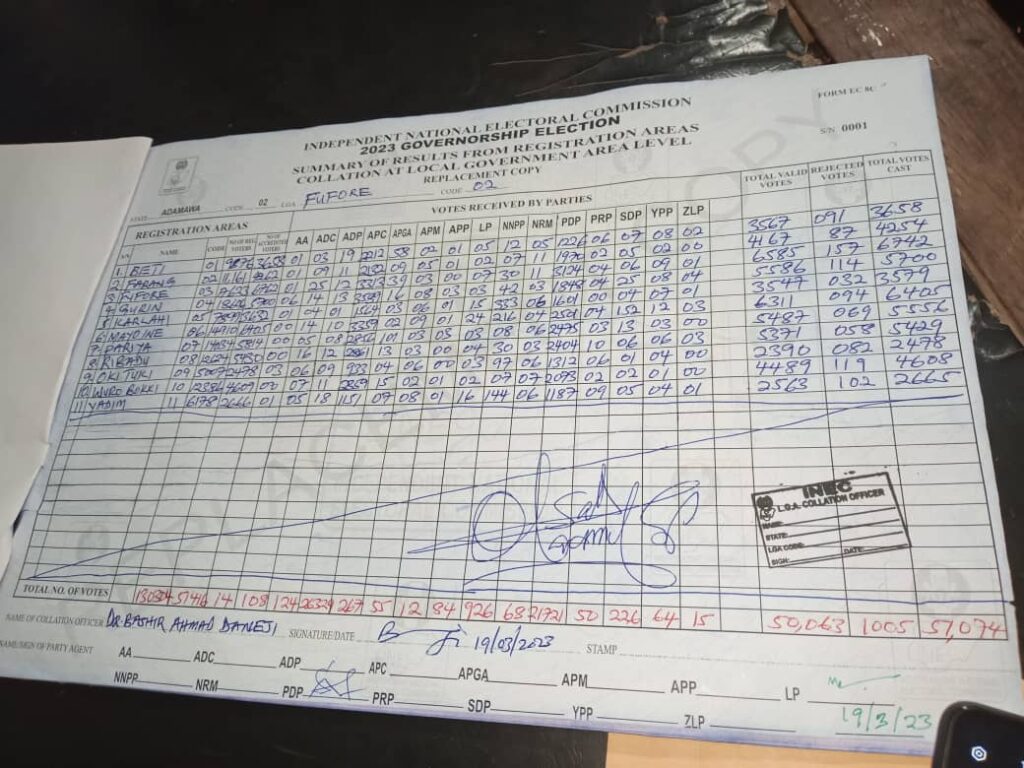 FORM EC 8C
INDEPENDENT NATIONAL ELECTORAL COMMISSION
2023 GOVERNORSHIP ELECTION
S/N 0001
SUMMARY OF RESULTS FROM REGISTRATION AREAS
COLLATION AT LOCAL GOVERNMENT AREA LEVEL
REPLACEMENT COPY
STATE ADAMAWA CODE 02 LGA FUFORE CODE 02
REGISTRATION AREAS VOTES RECEIVED BY PARTIES TOTAL VALID VOTES REJECTED VOTES TOTAL VOTES CAST
S/N NAME CODE NO OF REG. VOTERS NO OF ACCREDITED VOTERS AA ADC ADP APC APGA APM APP LP NNPP NRM PDP PRP SDP YPP ZLP
1 BETI 01 9876 3658 01 03 19 2212 58 02 01 05 12 05 1226 06 07 08 02 3567 091 3658
2 FARANG 02 11161 4262 01 09 11 2132 09 05 01 02 07 11 1970 02 05 02 00 4167 87 4254
3 FUFORE 03 6742 01 25 12 3313 39 03 00 07 30 11 3124 04 06 09 01 6585 157 6742
4 GURIN 04 5700 06 14 13 3539 16 08 03 03 42 03 1848 04 25 08 04 5586 114 5700
5 KARLAHI 05 3632 01 04 01 1564 03 06 01 15 333 06 1601 00 04 07 01 3547 032 3579
6 MAYO INE 06 14910 6405 00 14 10 3359 02 09 01 24 216 04 2501 04 152 12 03 6311 094 6405
7 PARIYA 07 5814 00 05 08 2856 101 03 03 03 08 06 2475 03 13 03 00 5487 069 5556
8 RIBADU 08 5430 00 16 12 2861 13 03 00 04 30 03 2404 10 06 06 03 5371 058 5429
9 2478 03 06 09 933 04 06 00 03 97 06 1312 06 01 04 00 2390 082 2478
10 WURO BOKKI 10 4609 00 07 11 2339 15 02 01 02 07 07 2073 02 02 01 00 4489 119 4608
11 YADIM 11 6178 2666 01 05 18 1151 07 08 01 16 144 06 1187 09 05 04 01 2563 102 2665
INEC
L.G.A. COLLATION OFFICER
NAME:
STATE:
LGA CODE:
SIGN: DATE:
TOTAL NO. OF VOTES 130304 57416 14 108 124 26329 267 55 12 84 926 68 21721 50 226 64 15 50,063 1005 51,074
NAME OF COLLATION OFFICER DR. BASHIR AHMAD DANEJI SIGNATURE/DATE 19/03/2023 STAMP
NAME/SIGN OF PARTY AGENT
AA ADC ADP APC APGA APM APP LP
NNPP NRM PDP PRP SDP YPP ZLP 19/3/23